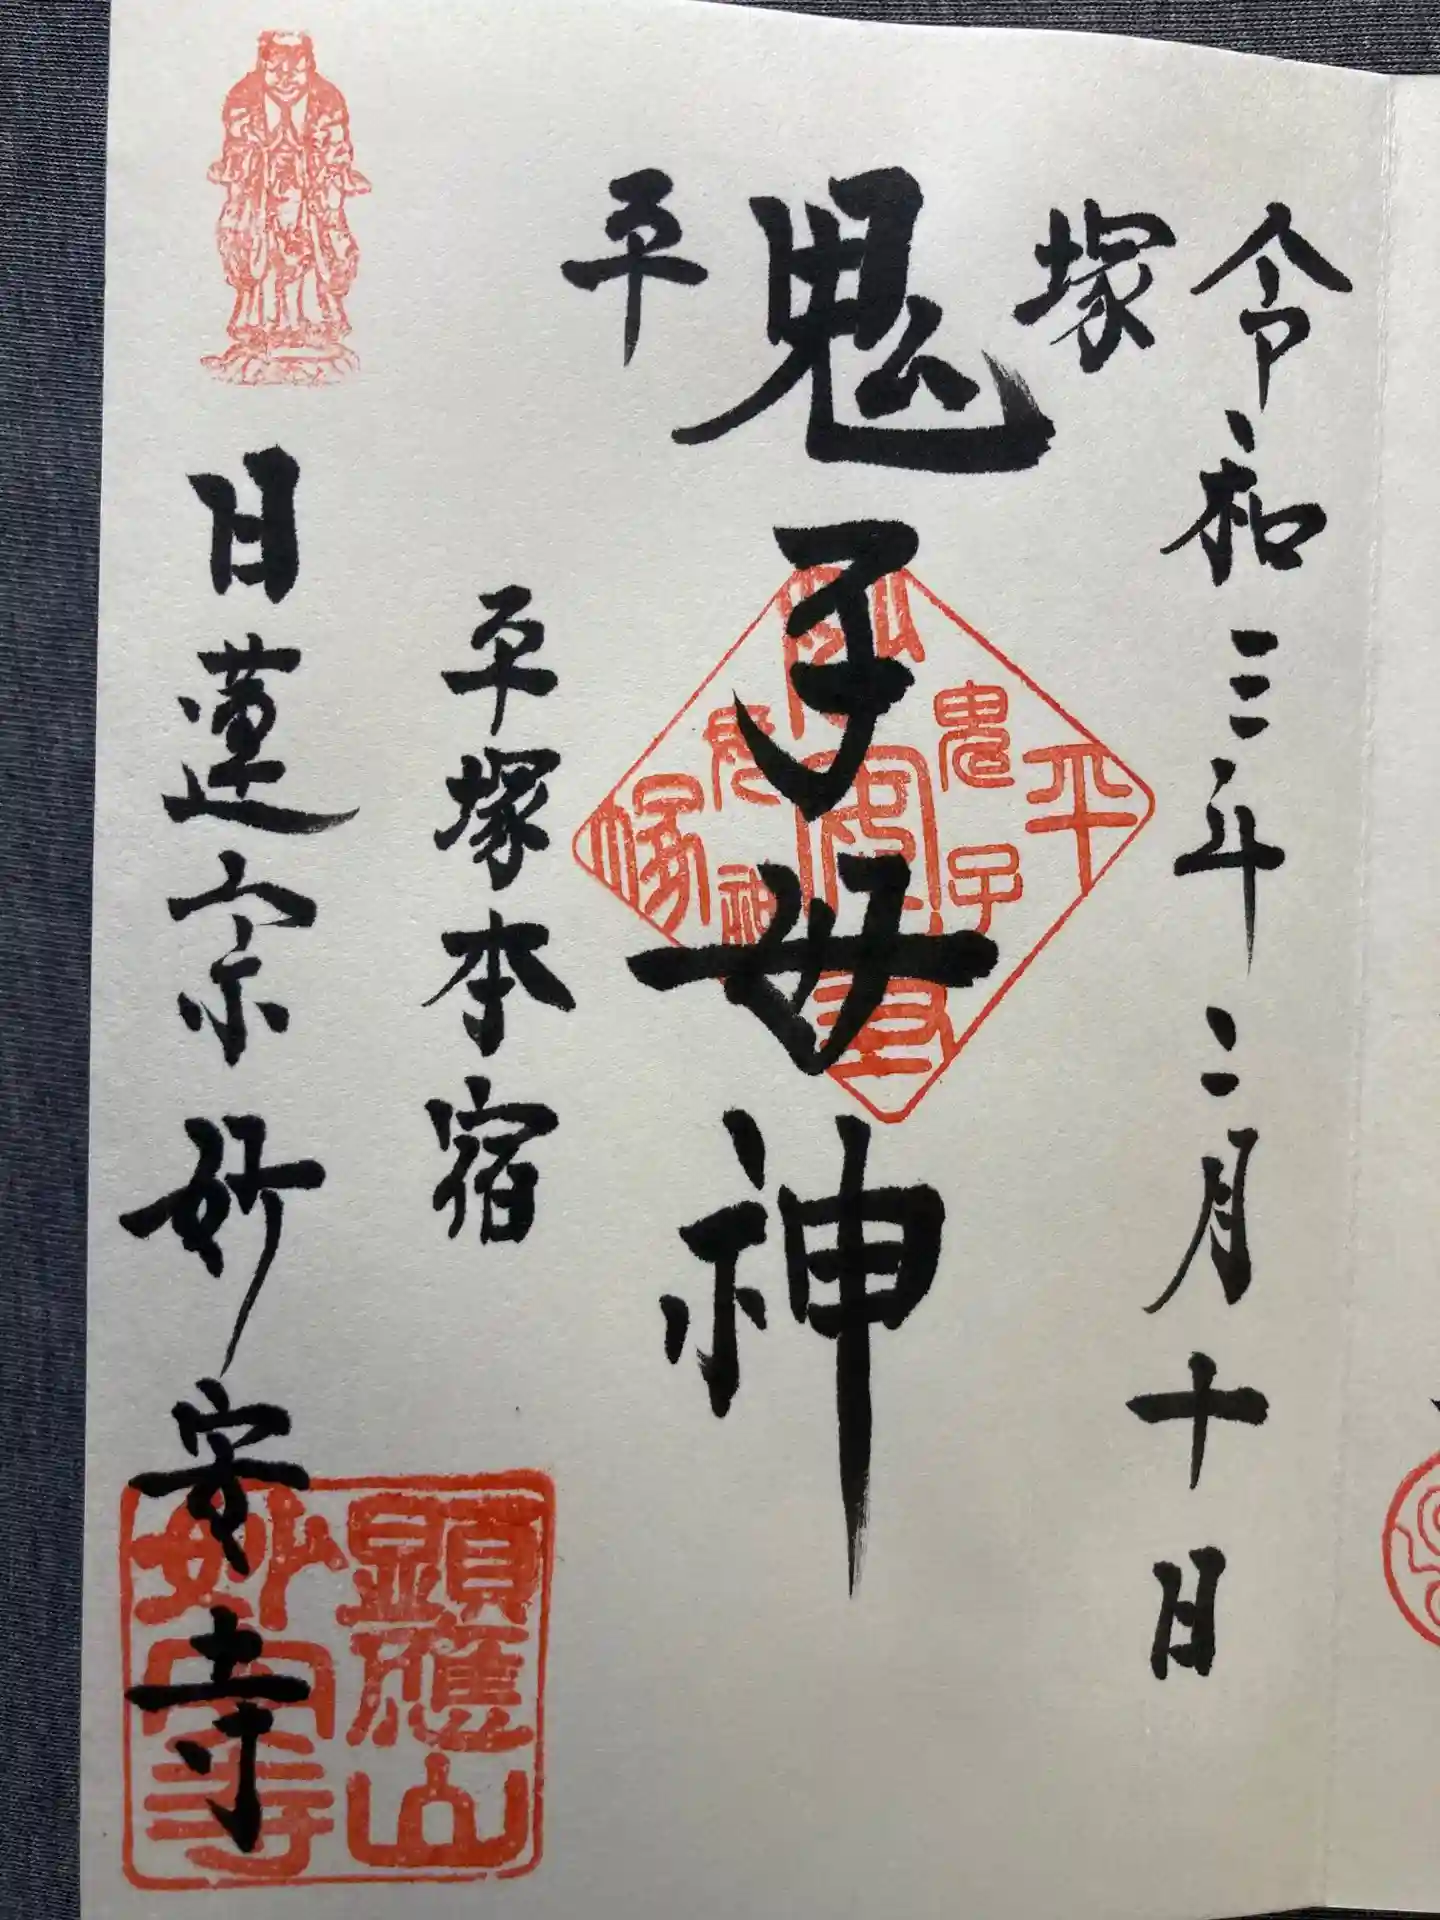 令和三年二月十日
塚
鬼子母神
平
平塚本宿
日蓮宗 妙安寺
平
鬼子
妙安寺
塚
顕應山
妙安寺